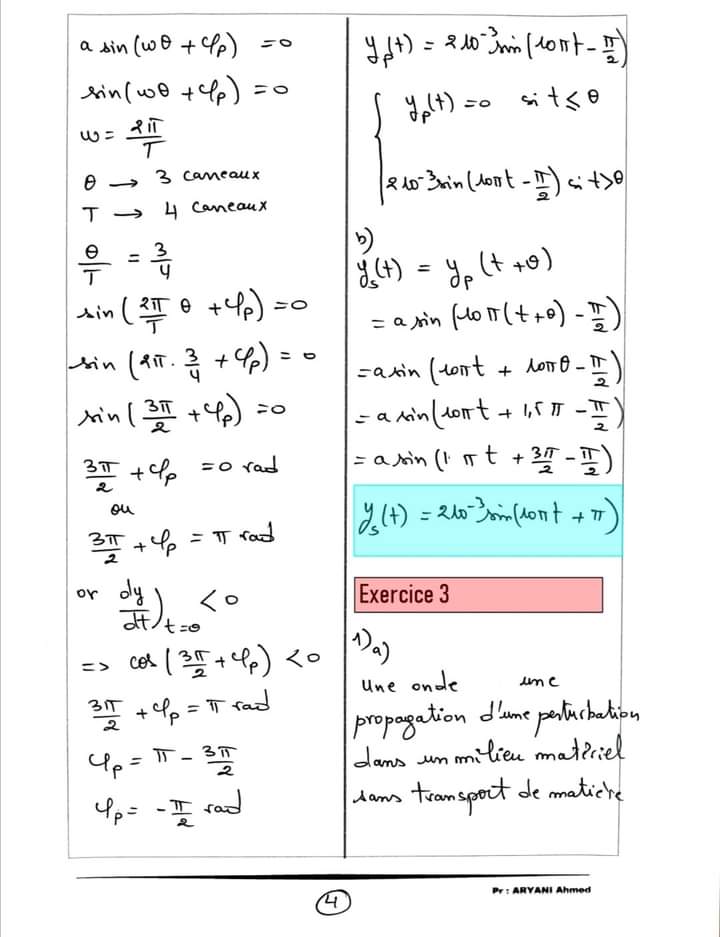 a sin(ωθ + φp) = 0
sin(ωθ + φp) = 0
ω = 2π/T
θ → 3 carreaux
T → 4 carreaux
θ/T = 3/4
sin(2π/T θ + φp) = 0
sin(2π · 3/4 + φp) = 0
sin(3π/2 + φp) = 0
3π/2 + φp = 0 rad
ou
3π/2 + φp = π rad
or dy/dt)t=θ < 0
=> cos(3π/2 + φp) < 0
3π/2 + φp = π rad
φp = π - 3π/2
φp = -π/2 rad
yp(t) = 2 10⁻³ sin(10πt - π/2)
{ yp(t) = 0 si t ≤ θ
2 10⁻³ sin(10πt - π/2) si t > θ
b)
ys(t) = yp(t + θ)
= a sin(10π(t+θ) - π/2)
= a sin(10πt + 10πθ - π/2)
= a sin(10πt + 1,5π - π/2)
= a sin(1 πt + 3π/2 - π/2)
ys(t) = 2 10⁻³ sin(10πt + π)
Exercice 3
1) a)
Une onde une
propagation d'une perturbation
dans un milieu matériel
sans transport de matière
Pr : ARYANI Ahmed
4